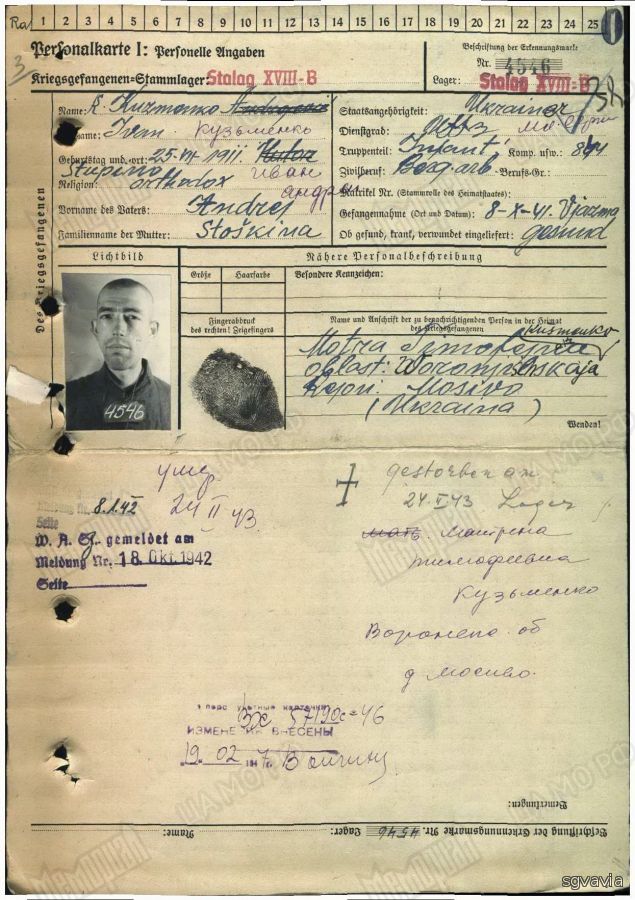 Ra 1 2 3 4 5 6 7 8 9 10 11 12 13 14 15 16 17 18 19 20 21 22 23 24 25
Personalkarte I: Personelle Angaben
Kriegsgefangenen-Stammlager: Stalag XVIII-B
Beschriftung der Erkennungsmarke
Nr. 4546
Lager: Stalag XVIII-B
Des Kriegsgefangenen
Name: Kuzmenko
Vorname: Iwan Кузьменко
Geburtstag und -ort: 25. 1911.
Stupino Иван
Religion: orthodox
Vorname des Vaters: Andrej
Familienname der Mutter: Stoškina
Staatsangehörigkeit: Ukrainer
Dienstgrad:
Truppenteil: Infant Komp. usw.:
Zivilberuf: Berufs-Gr.:
Matrikel Nr. (Stammrolle des Heimatstaates):
Gefangennahme (Ort und Datum): 8-X-41. Vjazma
Ob gesund, krank, verwundet eingeliefert: gesund
Lichtbild
4546
Nähere Personalbeschreibung
Größe Haarfarbe Besondere Kennzeichen:
Fingerabdruck
des rechten! Zeigefingers
Name und Anschrift der zu benachrichtigenden Person in der Heimat
des Kriegsgefangenen
Kuzmenko
Motra
oblast:
Rejon: Mosivo
(Ukraina)
Wenden!
умер
24 II 43.
gestorben am
24. II 43 Lager
8.1.42
Seite
W. A. St. gemeldet am
Meldung Nr. 18. Okt. 1942
Seite
мать Матрена
тимофеевна
Кузьменко
об
д мосиво.
в перс учетные карточки
Вх 57190с-46
ИЗМЕНЕНИЯ ВНЕСЕНЫ
19. 02 7г.
Bemerkungen:
Beschriftung der Erkennungsmarke Nr. 4546 Lager: Name:
sgvavia